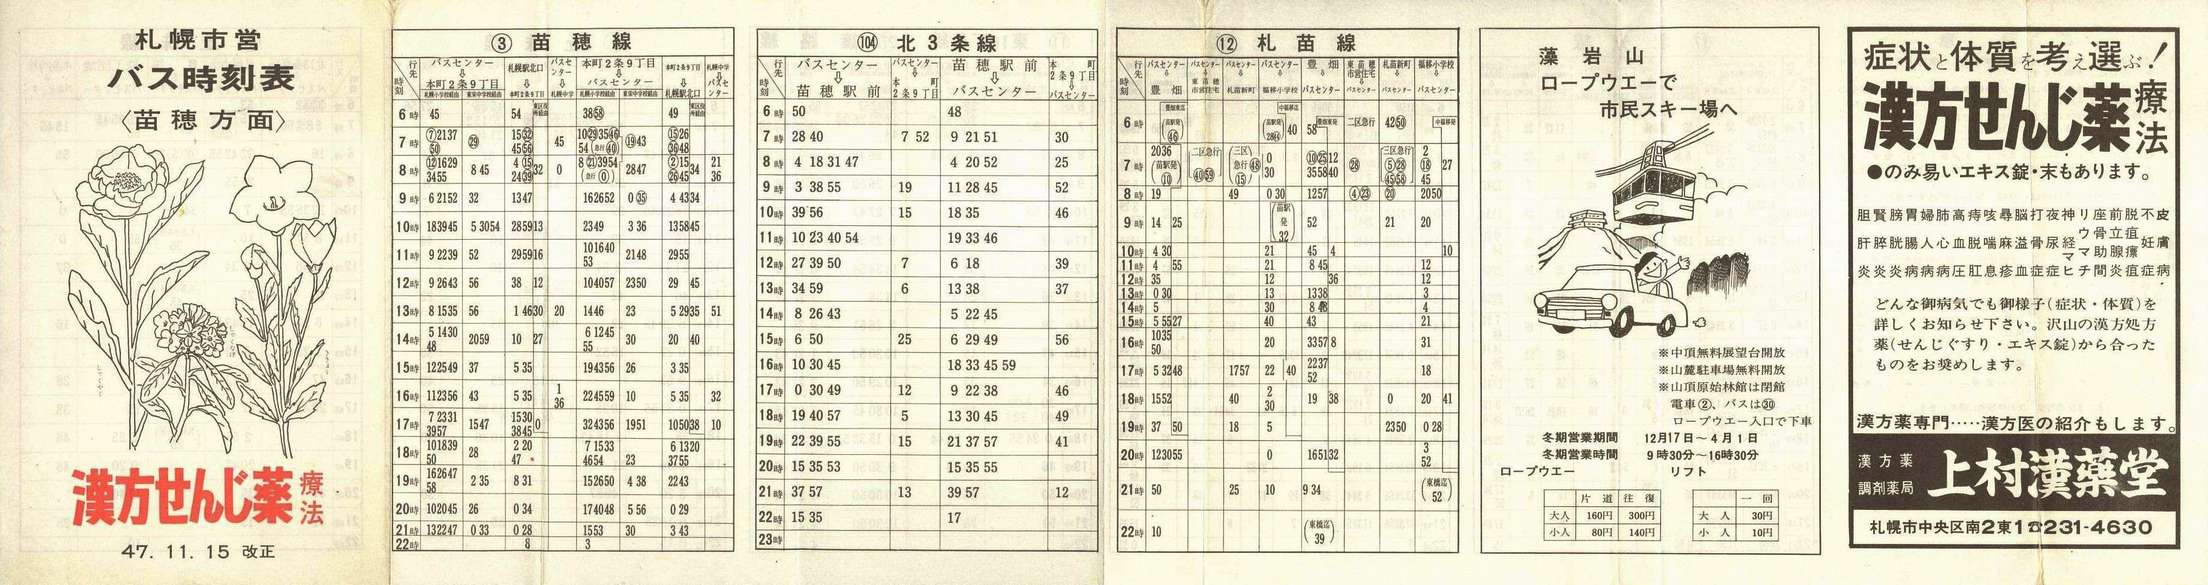 札幌市営
バス時刻表
〈苗穂方面〉
漢方せんじ薬 療法
47.11.15 改正
③ 苗穂線
時刻 行先
バスセンター ⇩ 本町2条9丁目
札幌駅北口 ⇩ 本町2条9丁目
バスセンター ⇩ 札幌中学
本町2条9丁目 ⇩ バスセンター
本町2条9丁目 ⇩ 札幌駅北口
札幌中学 ⇩ バスセンター
札幌小学校経由 東栄中学校経由 札幌小学校経由 東栄中学校経由
6時 45 54 38 58 49
7時 ⑦ 21 37 50 ㉙ 15 32 45 56 45 10 29 35 46 54 急行 40 ⑲ 43 15 26 36 48
8時 ⑫ 16 29 34 55 8 45 4 ⑮ 24 39 32 0 8 ㉑ 39 54 急行 0 28 47 ② 15 26 45 34 21 36
9時 6 21 52 32 13 47 16 26 52 0 ㉟ 4 43 34
10時 18 39 45 5 30 54 28 59 13 23 49 3 36 13 58 45
11時 9 22 39 52 29 59 16 10 16 40 53 21 48 29 55
12時 9 26 43 56 38 12 10 40 57 23 50 29 45
13時 8 15 35 56 1 46 30 20 14 46 23 5 29 35 51
14時 5 14 30 48 20 59 10 27 6 12 45 55 30 20 40
15時 12 25 49 37 5 35 19 43 56 26 3 35
16時 11 23 56 43 5 35 1 36 22 45 59 10 5 35 32
17時 7 23 31 39 57 15 47 15 30 38 45 0 32 43 56 19 51 10 50 38 10
18時 10 18 39 50 28 2 20 47 7 15 33 46 54 23 6 13 20 37 55
19時 16 26 47 58 2 35 8 31 15 26 50 4 38 22 43
20時 10 20 45 26 0 34 17 40 48 5 56 0 29
21時 13 22 47 0 33 0 28 15 53 30 3 43
22時 8 3
⑩④ 北3条線
時刻 行先
バスセンター ⇩ 苗穂駅前
バスセンター ⇩ 本町2条9丁目
苗穂駅前 ⇩ バスセンター
本町2条9丁目 ⇩ バスセンター
6時 50 48
7時 28 40 7 52 9 21 51 30
8時 4 18 31 47 4 20 52 25
9時 3 38 55 19 11 28 45 52
10時 39 56 15 18 35 46
11時 10 23 40 54 19 33 46
12時 27 39 50 7 6 18 39
13時 34 59 6 13 38 37
14時 8 26 43 5 22 45
15時 6 50 25 6 29 49 56
16時 10 30 45 18 33 45 59
17時 0 30 49 12 9 22 38 46
18時 19 40 57 5 13 30 45 49
19時 22 39 55 15 21 37 57 41
20時 15 35 53 15 35 55
21時 37 57 13 39 57 12
22時 15 35 17
23時
⑫ 札苗線
時刻 行先
バスセンター ⇩ 豊畑
バスセンター ⇩ 東苗穂市営住宅
バスセンター ⇩ 札苗新町
バスセンター ⇩ 福移小学校
豊畑 ⇩ バスセンター
東苗穂市営住宅 ⇩ バスセンター
札苗新町 ⇩ バスセンター
福移小学校 ⇩ バスセンター
6時 40 58 二区急行 42 50
7時 20 36 苗駅発 ⑩ 二区急行 40 59 三区急行 48 ⑮ 0 30 10 25 12 35 58 40 28 三区急行 5 28 45 58 2 18 45 27
8時 19 49 0 30 12 57 ④ 23 20 20 50
9時 14 25 苗駅発 32 52 21 20
10時 4 30 21 45 4 10
11時 4 55 21 8 45 12
12時 35 12 36 12
13時 0 30 13 13 38 3
14時 5 5 8 4
15時 5 55 27 40 43 21
16時 10 35 50 20 33 57 8 31
17時 5 32 48 17 57 22 40 22 37 52 18
18時 15 52 40 2 30 19 38 0 20 41
19時 37 50 18 5 23 50 0 28
20時 12 30 55 0 16 51 32 3 52
21時 50 25 10 9 34 東橋迄 52
22時 10 東橋迄 39
藻岩山
ロープウエーで
市民スキー場へ
※中頂無料展望台開放
※山麓駐車場無料開放
※山頂原始林館は閉館
電車②、バスは㉚
ロープウエー入口で下車
冬期営業期間 12月17日～4月1日
冬期営業時間 9時30分～16時30分
ロープウエー リフト
片道 往復 一回
大人 160円 300円 大人 30円
小人 80円 140円 小人 10円
症状と体質を考え選ぶ！
漢方せんじ薬 療法
●のみ易いエキス錠・末もあります。
胆肝炎 賢膵炎 膀胱炎 胃腸病 婦人病 肺心病 高血圧 痔脱肛 咳喘息 蕁麻疹 脳溢血 打骨症 夜尿症 神経ヒ リウマチ 座骨 前立腺 脱疽 不妊症 皮膚病
どんな御病気でも御様子(症状・体質)を
詳しくお知らせ下さい。沢山の漢方処方
薬(せんじぐすり・エキス錠)から合った
ものをお奨めします。
漢方薬専門‥‥‥漢方医の紹介もします。
漢方薬
調剤薬局
上村漢薬堂
札幌市中央区南2東1☎231-4630